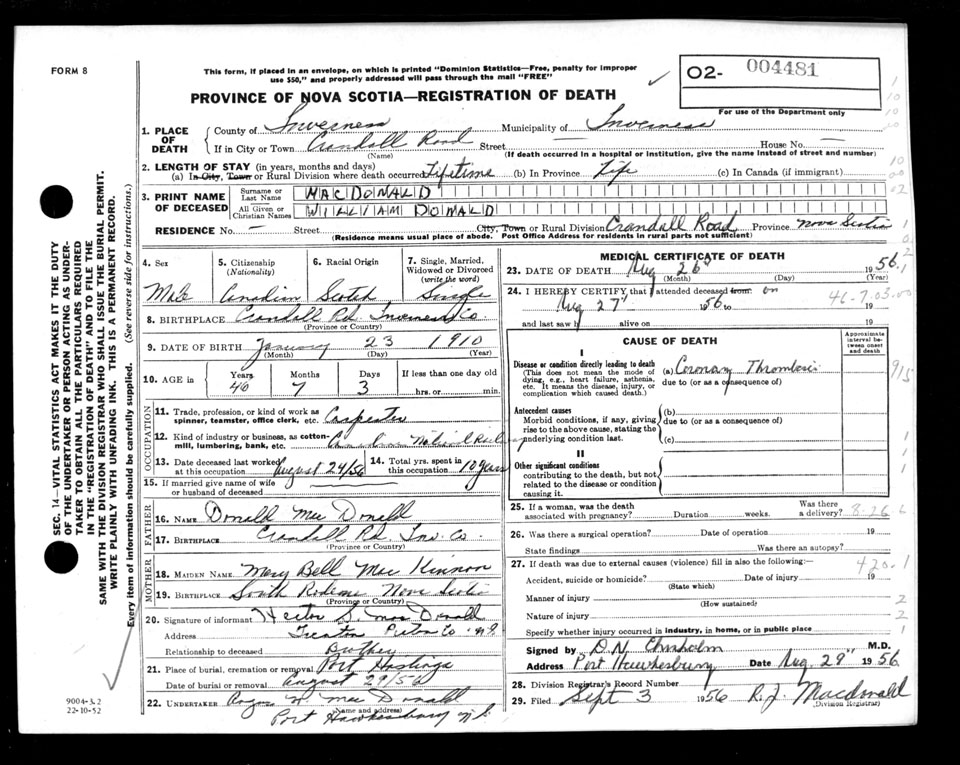 FORM 8
This form, if placed in an envelope, on which is printed "Dominion Statistics—Free, penalty for improper
use $50," and properly addressed will pass through the mail "FREE"
O2- 004481
For use of the Department only
PROVINCE OF NOVA SCOTIA—REGISTRATION OF DEATH
1. PLACE OF DEATH
County of Inverness Municipality of Inverness
If in City or Town Crandall Road Street — House No. —
(Name) (If death occurred in a hospital or institution, give the name instead of street and number)
2. LENGTH OF STAY (in years, months and days)
(a) In City, Town or Rural Division where death occurred Lifetime (b) In Province Life (c) In Canada (if immigrant)
3. PRINT NAME OF DECEASED
Surname or Last Name MACDONALD
All Given or Christian Names WILLIAM DONALD
RESIDENCE No. — Street City, Town or Rural Division Crandall Road Province Nova Scotia
(Residence means usual place of abode. Post Office Address for residents in rural parts not sufficient)
4. Sex Male
5. Citizenship (Nationality) Canadian
6. Racial Origin Scotch
7. Single, Married, Widowed or Divorced (write the word) Single
8. BIRTHPLACE Crandall Rd Inverness Co
(Province or Country)
9. DATE OF BIRTH January 23 1910
(Month) (Day) (Year)
10. AGE in Years 46 Months 7 Days 3 If less than one day old
hrs. or min.
OCCUPATION
11. Trade, profession, or kind of work as spinner, teamster, office clerk, etc. Carpenter
12. Kind of industry or business, as cotton-mill, lumbering, bank, etc. Canadian National Railway
13. Date deceased last worked at this occupation August 24/56
14. Total yrs. spent in this occupation 10 years
15. If married give name of wife or husband of deceased
FATHER
16. NAME Donald Mac Donald
17. BIRTHPLACE Crandall Rd. Inv. Co.
(Province or Country)
MOTHER
18. MAIDEN NAME Mary Bell Mac Kinnon
19. BIRTHPLACE South Nova Scotia
(Province or Country)
20. Signature of informant Hector S. Mac Donald
Address Trenton Pictou Co. N.S.
Relationship to deceased Brother
21. Place of burial, cremation or removal Port Hastings
Date of burial or removal August 29/56
22. UNDERTAKER Mac Donald
(Name and address)
Port Hawkesbury N.S.
MEDICAL CERTIFICATE OF DEATH
23. DATE OF DEATH Aug 26" 1956.
(Month) (Day) (Year)
24. I HEREBY CERTIFY that I attended deceased from: on
Aug 27" 1956 to 19
and last saw h alive on 19
46-7.03.00
CAUSE OF DEATH
Approximate interval between onset and death
I
Disease or condition directly leading to death
(This does not mean the mode of dying, e.g., heart failure, asthenia, etc. It means the disease, injury, or complication which caused death.)
(a) Coronary Thrombosis
due to (or as a consequence of)
Antecedent causes
Morbid conditions, if any, giving rise to the above cause, stating the underlying condition last.
(b)
due to (or as a consequence of)
(c)
II
Other significant conditions
contributing to the death, but not related to the disease or condition causing it.
25. If a woman, was the death associated with pregnancy? Duration weeks. Was there a delivery?
26. Was there a surgical operation? Date of operation 19
State findings Was there an autopsy?
27. If death was due to external causes (violence) fill in also the following: 420.1
Accident, suicide or homicide? Date of injury 19
(State which)
Manner of injury
(How sustained)
Nature of injury
Specify whether injury occurred in industry, in home, or in public place
Signed by D.N. Chisholm M.D.
Address Port Hawkesbury Date Aug 29" 1956
28. Division Registrar's Record Number
29. Filed Sept 3 1956 R. J. Macdonald
(Division Registrar)
SEC. 14—VITAL STATISTICS ACT MAKES IT THE DUTY
OF THE UNDERTAKER OR PERSON ACTING AS UNDER-
TAKER TO OBTAIN ALL THE PARTICULARS REQUIRED
IN THE "REGISTRATION OF DEATH" AND TO FILE THE
SAME WITH THE DIVISION REGISTRAR WHO SHALL ISSUE THE BURIAL PERMIT.
WRITE PLAINLY WITH UNFADING INK. THIS IS A PERMANENT RECORD.
Every item of information should be carefully supplied. (See reverse side for instructions.)
9004-3.2
22-10-52